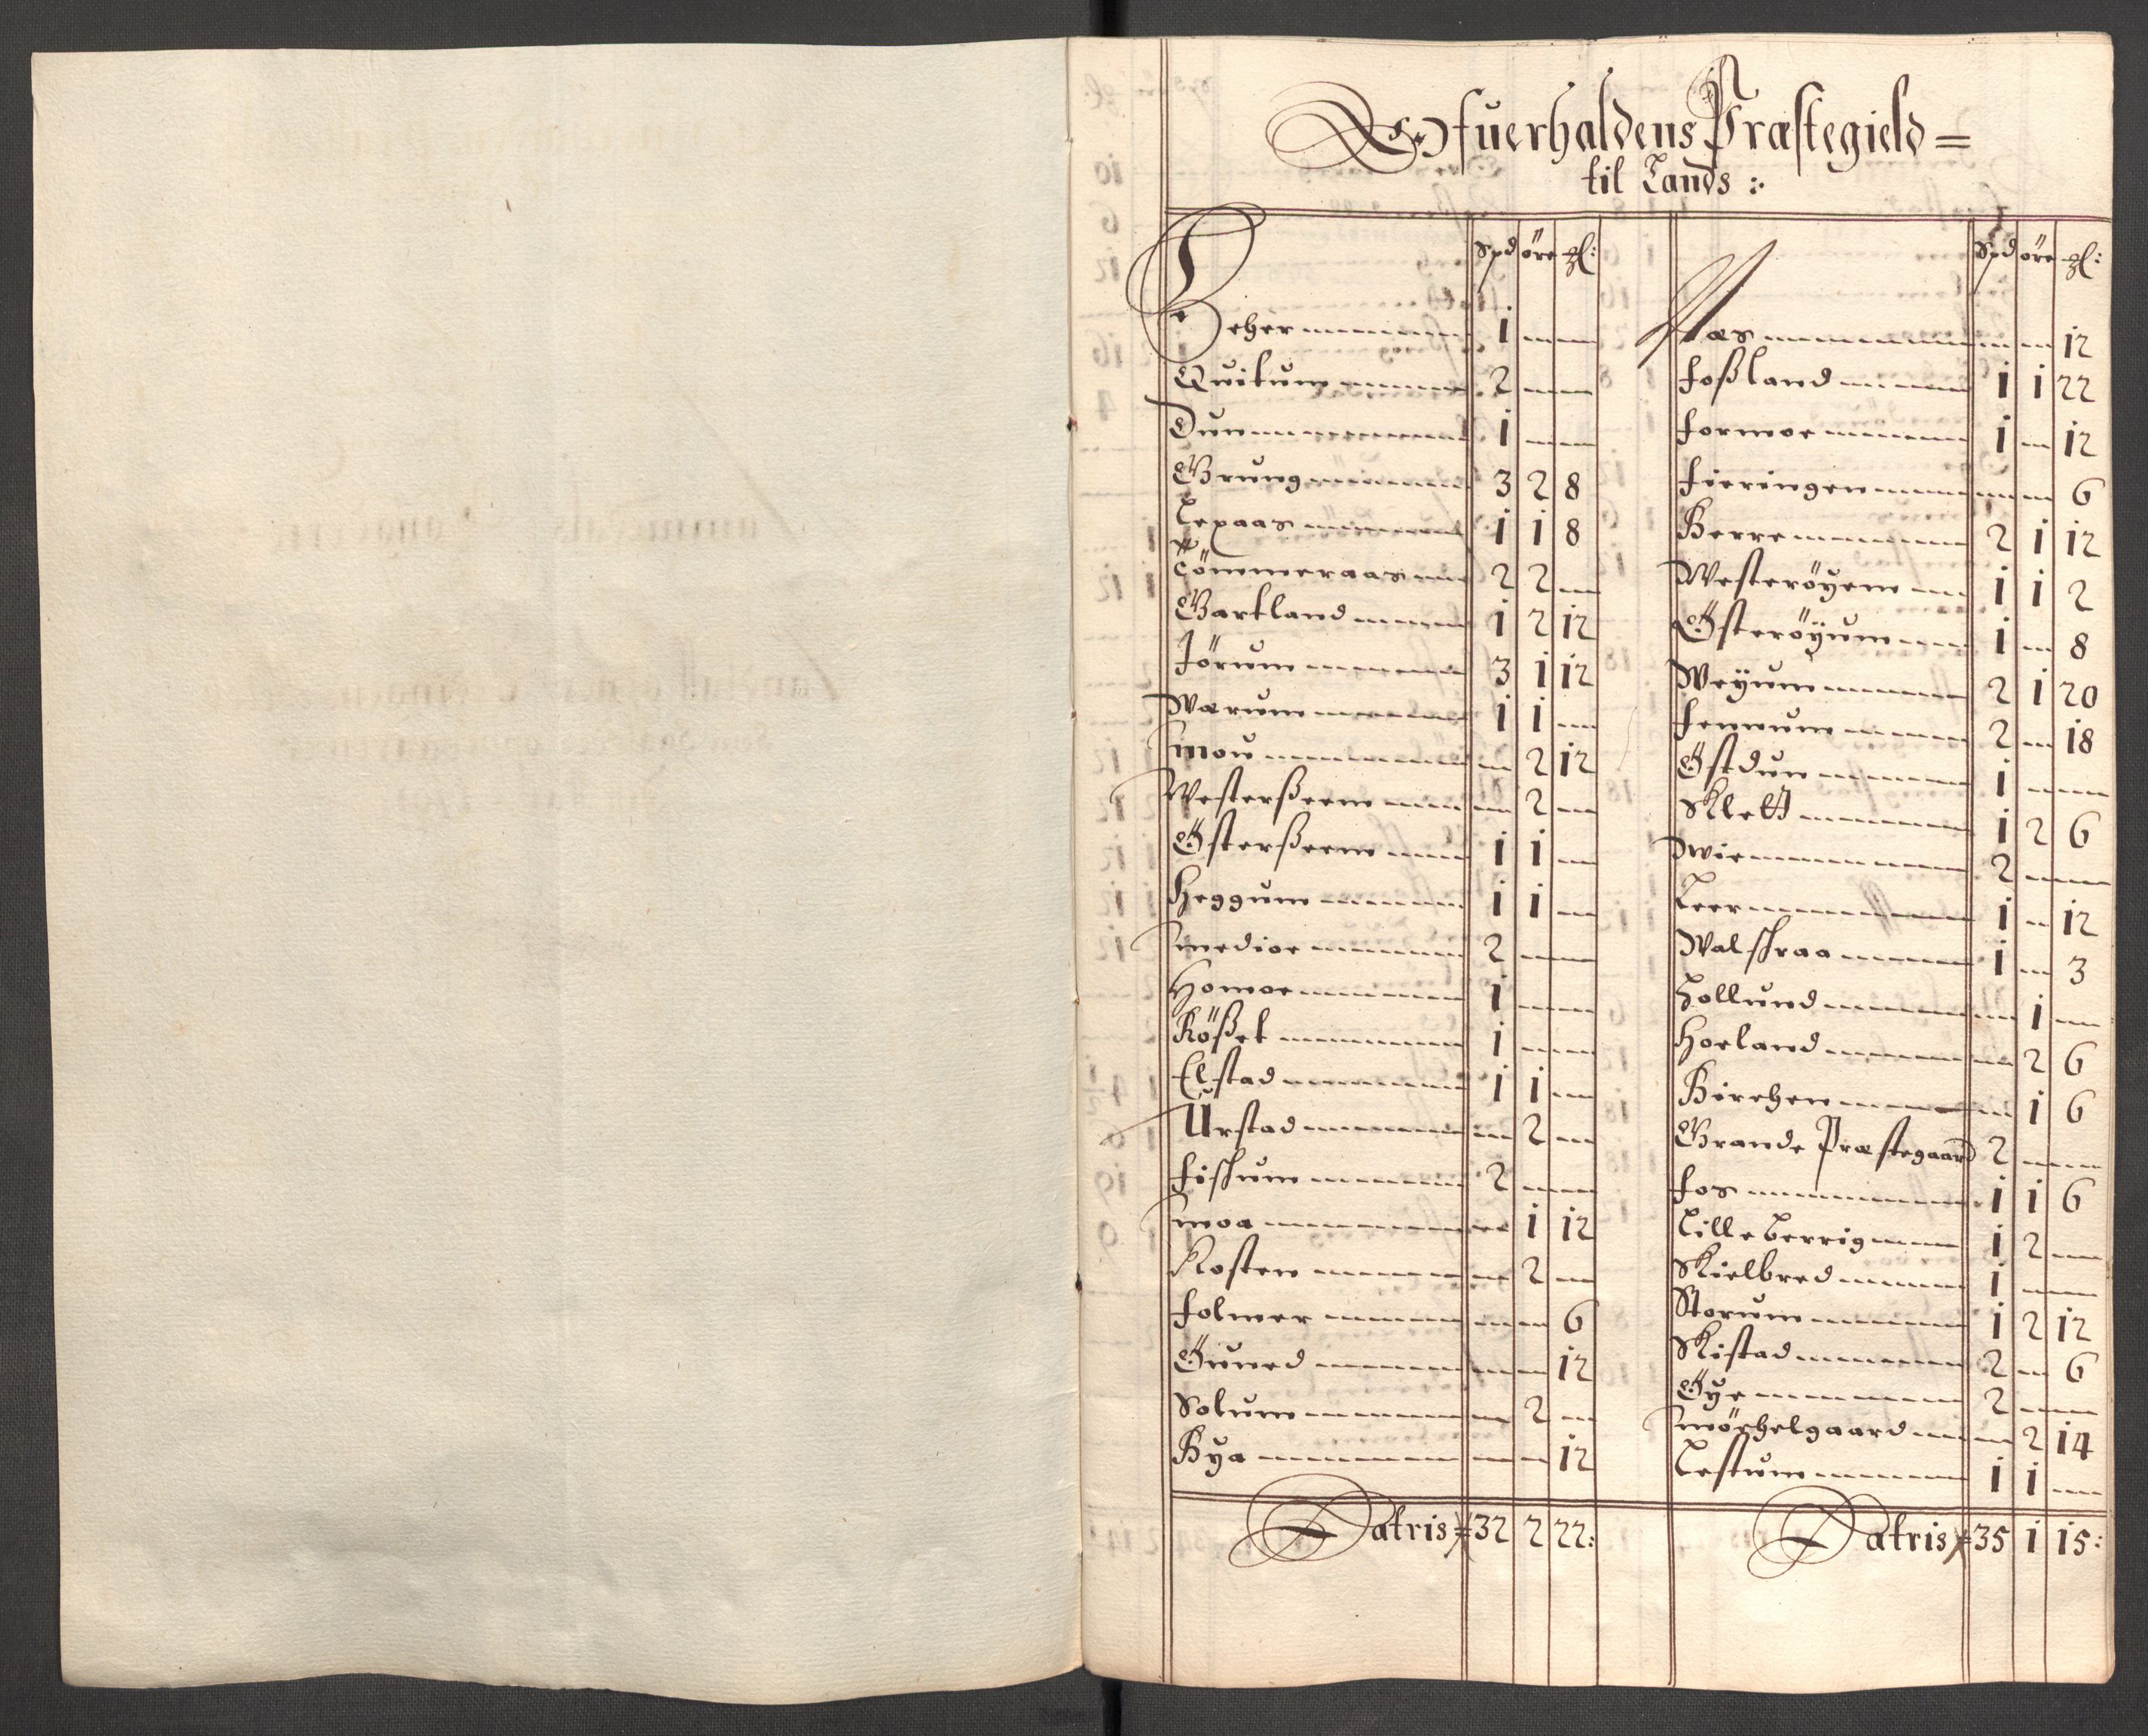 Ofuerhaldens Præstegield =
til Lands :
Spd öre gl:
eher 1
Quitum 2
Dun 1
Grung 3 2 8
Lexaas 1 1 8
Tömmeraas 2 2
Gartland 1 2 12
Jörum 3 1 12
Warum 1 1
mou 2 12
Westerßeem 2
Österßeem 1 1
Heggum 1 1
medioe 2
Homoe 1
Rößet 1
Elstad 1 1
Urstad 2
Fiskum 2
moa 1 12
Kosten 2
Folmer 6
Öuned 12
Solum 2
Bya 12
Latris 32 2 22:
Spd öre gl:
Næs 12
Foßland 1 1 22
Formoe 1 12
Fieringen 6
Berre 2 1 12
Westeröyem 1 1 2
Österöyum 1 8
Weyum 2 1 20
Femnum 2 18
Östdun 1
Klett 1 2 6
Wie 2
Leer 1 12
Walskraa 1 3
Hollund 1
Horland 2 6
Birchen 1 6
Grande Præstegaard 2
Fos 1 1 6
Lilleberrig 1 2
Skielbred 1
Storum 1 2 12
Skistad 2 6
Öye 2
mörchelgaard 2 14
Lestum 1 1
Latris 35 1 15: